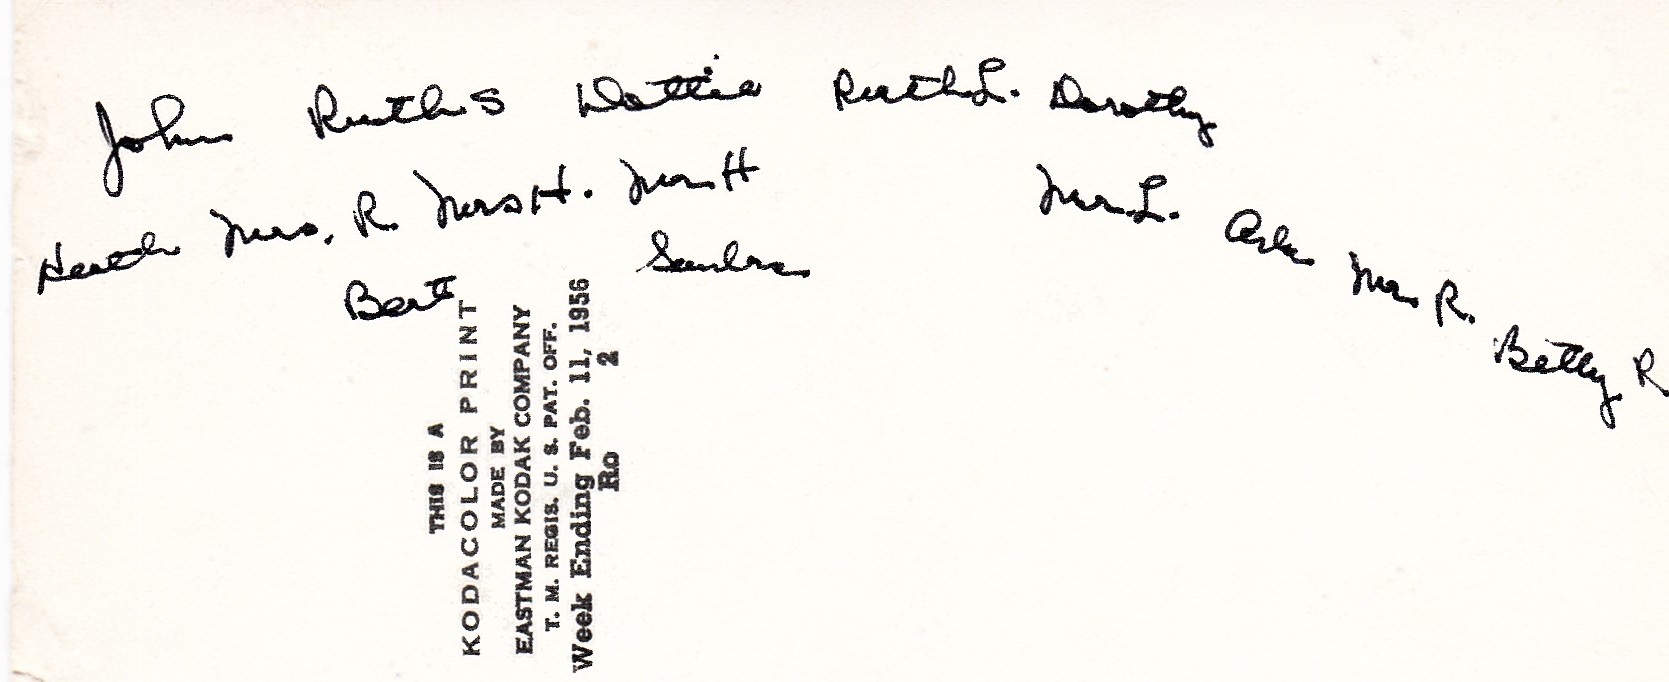 John Ruth S Dottie Ruth L. Dorothy
Mrs. R. Mrs H. Mr. H Mr. L. Mr. R. Betty R
Bert Sandra
THIS IS A
KODACOLOR PRINT
MADE BY
EASTMAN KODAK COMPANY
T. M. REGIS. U. S. PAT. OFF.
Week Ending Feb. 11, 1956
Ro 2